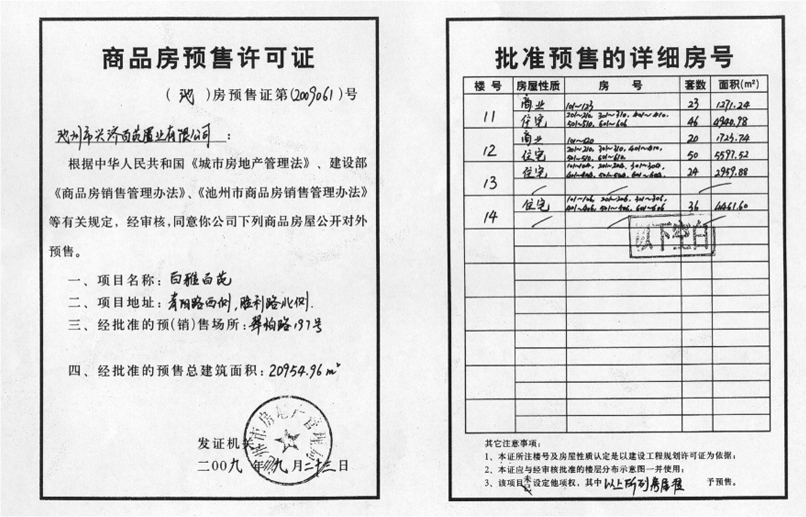 商品房预售许可证
(池)房预售证第(2009061)号
池州市兴济百苑置业有限公司：
根据中华人民共和国《城市房地产管理法》、建设部
《商品房销售管理办法》、《池州市商品房销售管理办法》
等有关规定，经审核，同意你公司下列商品房屋公开对外
预售。
一、项目名称：白雅百苑
二、项目地址：青阳路西侧，胜利路北侧.
三、经批准的预(销)售场所：翠柏路197号
四、经批准的预售总建筑面积：20954.96m²
池州市房地产管理局
发证机关
二00九年九月二十三日
批准预售的详细房号
楼号 房屋性质 房号 套数 面积(m²)
11 商业 101~123 23 1271.24
住宅 201~210. 301~310. 401~410. 501~510. 601~606 46 4940.98
12 商业 101~120 20 1723.74
住宅 201~210. 301~310. 401~410. 501~510. 601~610 50 5597.52
13 住宅 24 2959.88
14 住宅 101~106. 201~206. 301~306. 401~406. 501~506. 601~606 36 4461.60
以下空白
其它注意事项：
1、本证所注楼号及房屋性质认定是以建设工程规划许可证为依据；
2、本证应与经审核批准的楼层分布示意图一并使用；
3、该项目未设定他项权，其中以上所列房屋准予预售。